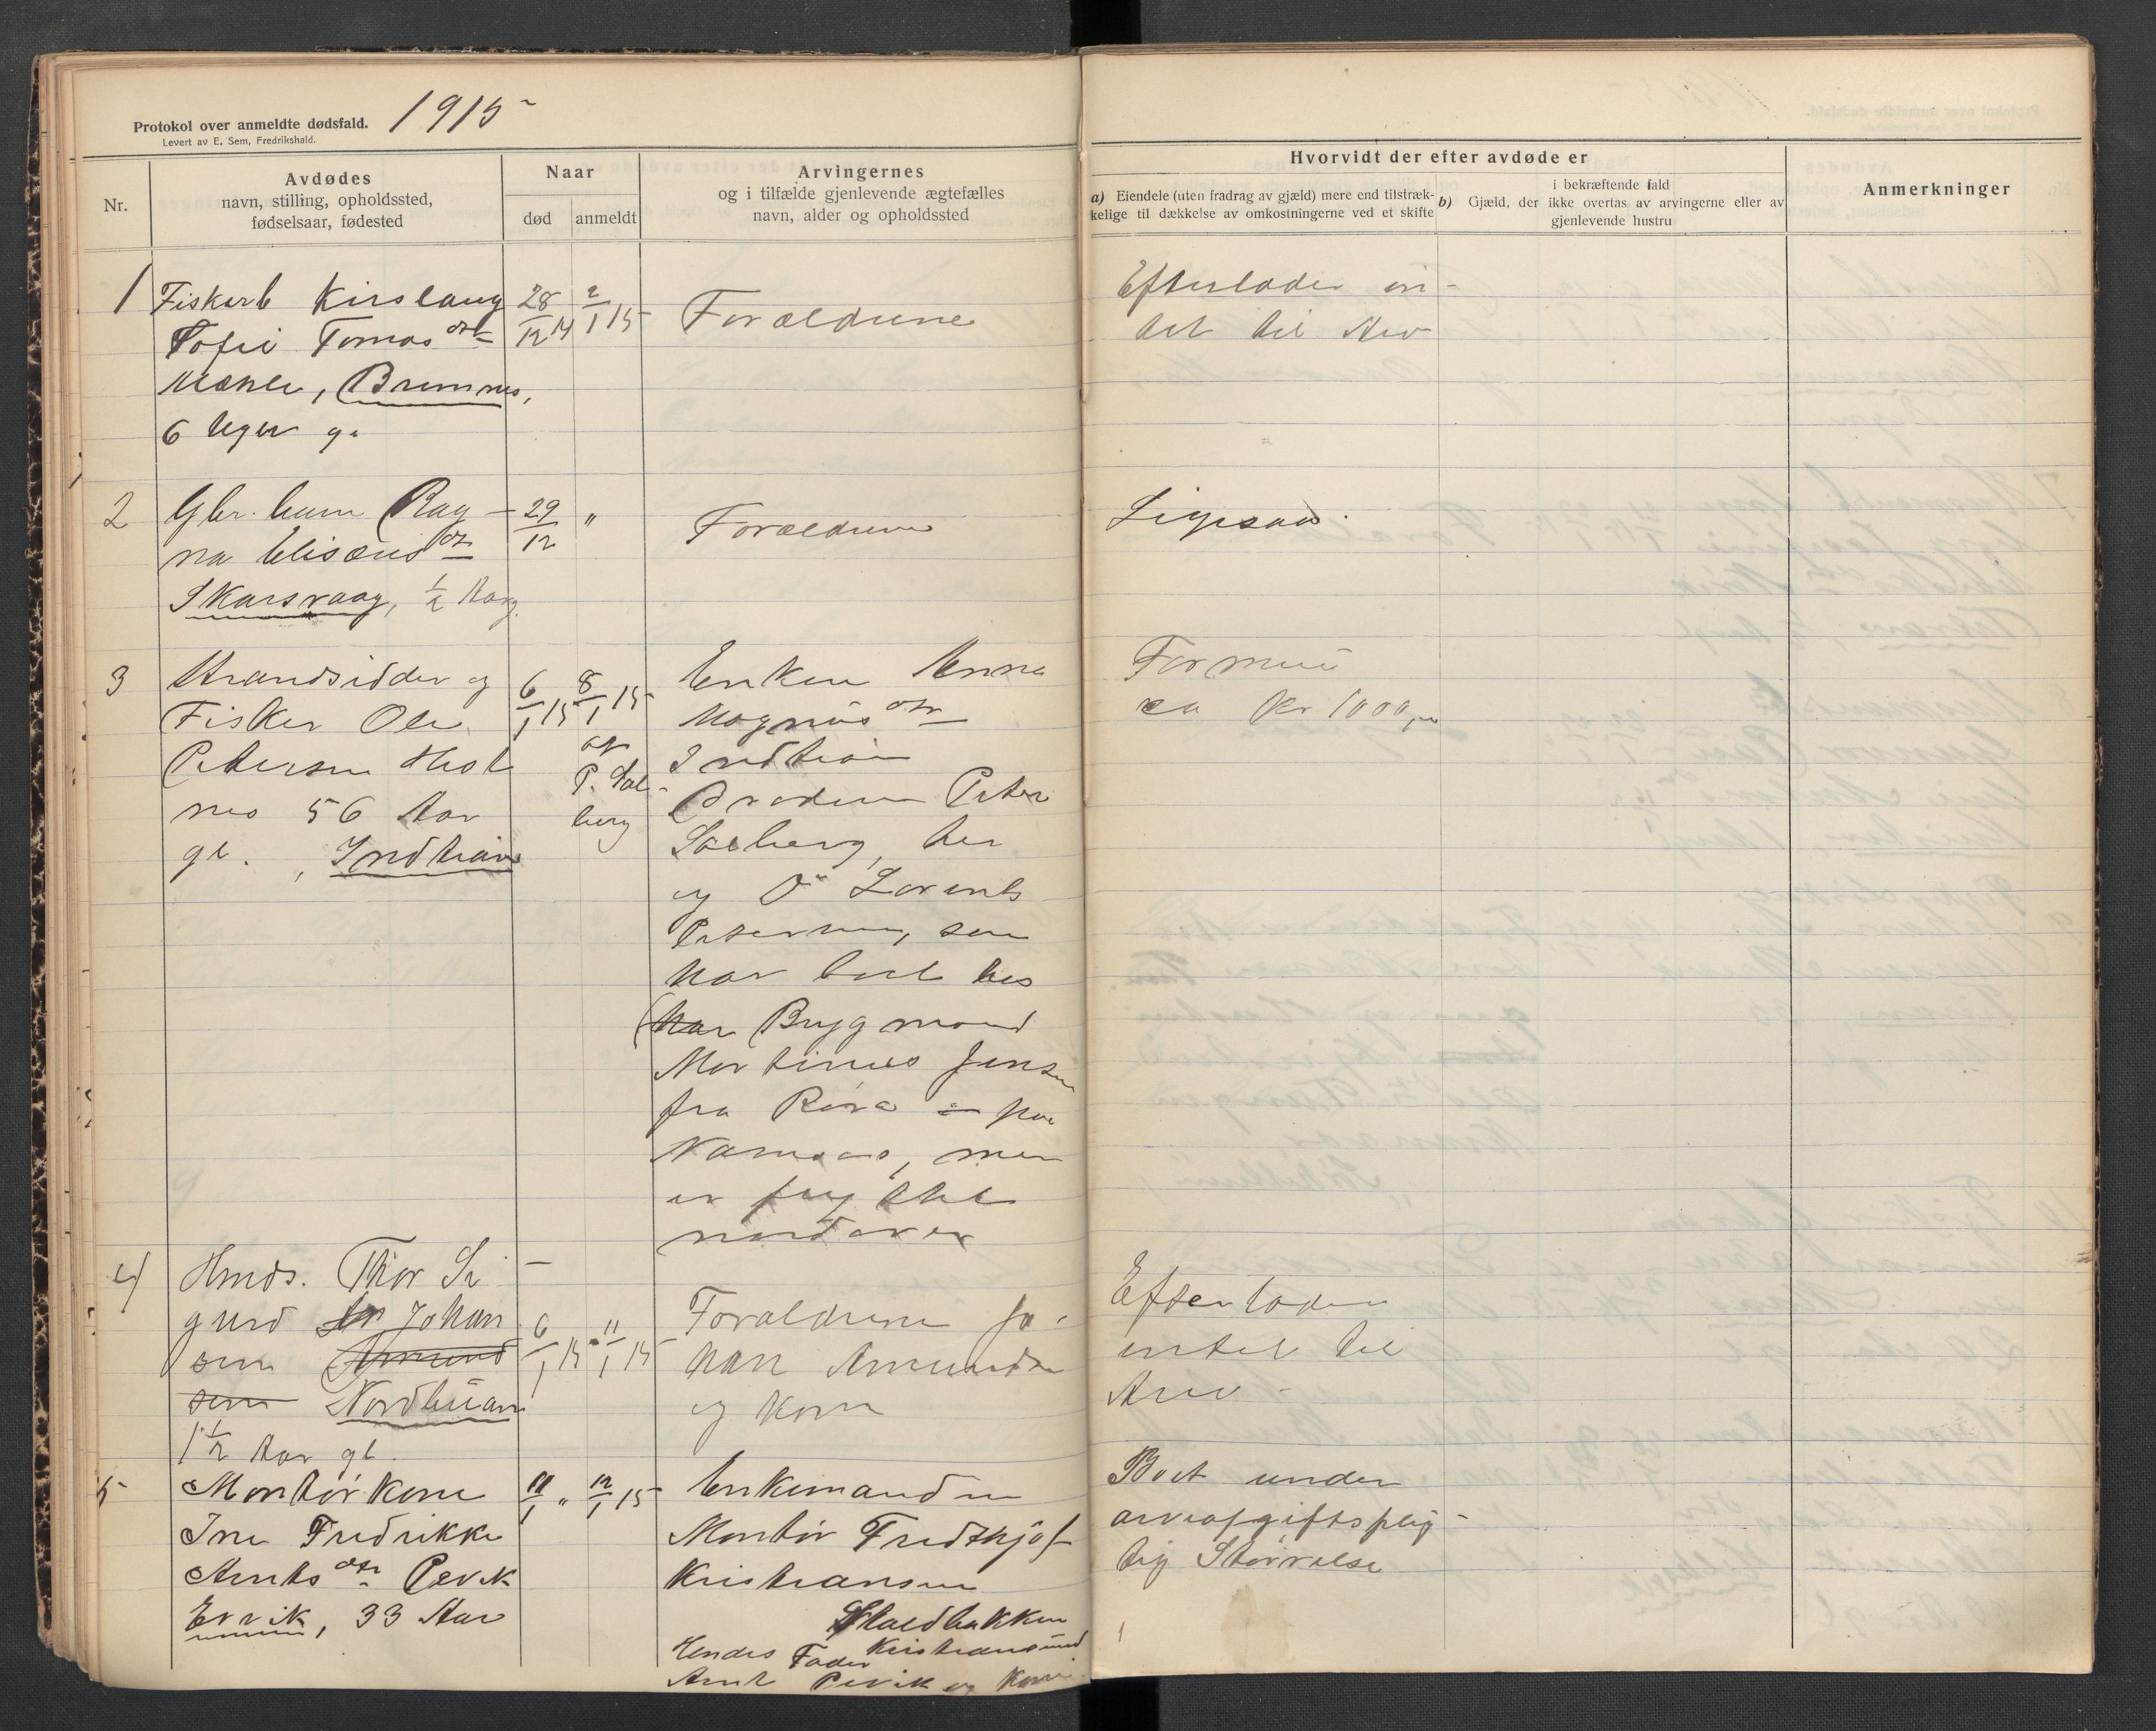 Protokol over anmeldte dødsfald. 1915
Levert av E. Sem, Fredrikshald.
Nr.
Avdødes
navn, stilling, opholdssted,
fødselsaar, fødested
Naar
død
anmeldt
Arvingernes
og i tilfælde gjenlevende ægtefælles
navn, alder og opholdssted
Hvorvidt der efter avdøde er
a) Eiendele (uten fradrag av gjæld) mere end tilstræk-
kelige til dækkelse av omkostningerne ved et skifte
i bekræftende fald
b) Gjæld, der ikke overtas av arvingerne eller av
gjenlevende hustru
Anmerkninger
1
Fiskerb Kirslaug
Sofie Tomas dtr
Mæhle, Bremnes,
6 Uger g.
28/12 14
2/1 15
Forældrene
Efterlader in-
tet til Arv
2
Gbr. barn Rag-
na Elisæus dtr
Skarsvaag, 1/2 Aar g.
29/12
"
Forældrene
Ligesaa.
3
Strandsidder og
Fisker Ole
Petersen Hest
nes 56 Aar
gl., Indtian
6/1 15
8/1 15
af
P. Sol-
berg
Enken Anna
Magnus dtr
Indtian
Broderen Peter
Solberg, her
og O Lorents
Petersen, som
har boet hos
(har Byggmand
Martinus Jensen
fra Röra paa
Namsos, men
er flyttet
nordover
Formue
ca kr 1000,
4
Hmds. Thor Si-
gurd Johan
sen Amund
sen Nordbuan
1 1/2 Aar gl.
6/1 15
11/1 15
Forældrene Jo-
han Amundsen
og Kone
Efterlader
intet til
Arv
5
Montör Kone
Ine Fredrikke
Arnts dtr Pevik
Ervik, 33 Aar
11/1 "
12/1 15
Enkemanden
Montör Fredthjof
Kristiansen
Kristiansund
Hendes Fader
Arnt Pevik og Kone
Boet under
arveafgiftsplig-
tig Störrelse